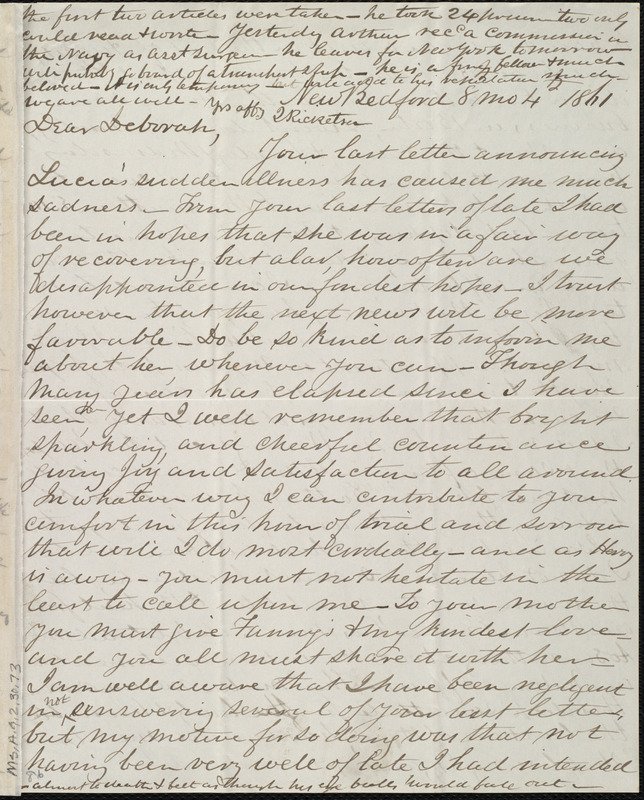 the first two articles were taken - he took 24 prem - two only
could read & wrote - Yesterday Arthur recd a commission in
the Navy as asst surgeon - he leaves for New York tomorrow
and probably aboard of a transport ship - he is a fine fellow & much
beloved - It is only temporary but quite added to his reputation
we are all well - Yrs aff. J Ricketson
New Bedford 8 mo 4 1861
Dear Deborah,
Your last letter announcing
Lucia's sudden illness has caused me much
sadness - From your last letters of late I had
been in hopes that she was in a fair way
of recovering, but alas, how often are we
disappointed in our fondest hopes - I trust
however that the next news will be more
favorable - Do be so kind as to inform me
about her whenever you can - Though
many years has elapsed since I have
seen her, yet I well remember that bright
sparkling and cheerful countenance
giving joy and satisfaction to all around
In whatever way I can contribute to your
comfort in this hour of trial and sorrow
that will I do most cordially - and as Henry
is away - you must not hesitate in the
least to call upon me - To your mother
you must give Fanny's & my kindest love -
and you all must share it with her -
I am well aware that I have been negligent
in not answering several of your last letters,
but my motive for so doing was that not
having been very well of late I had intended
- almost to death & felt as though his eye balls would fade out -
Ms.A.9.2.30.73